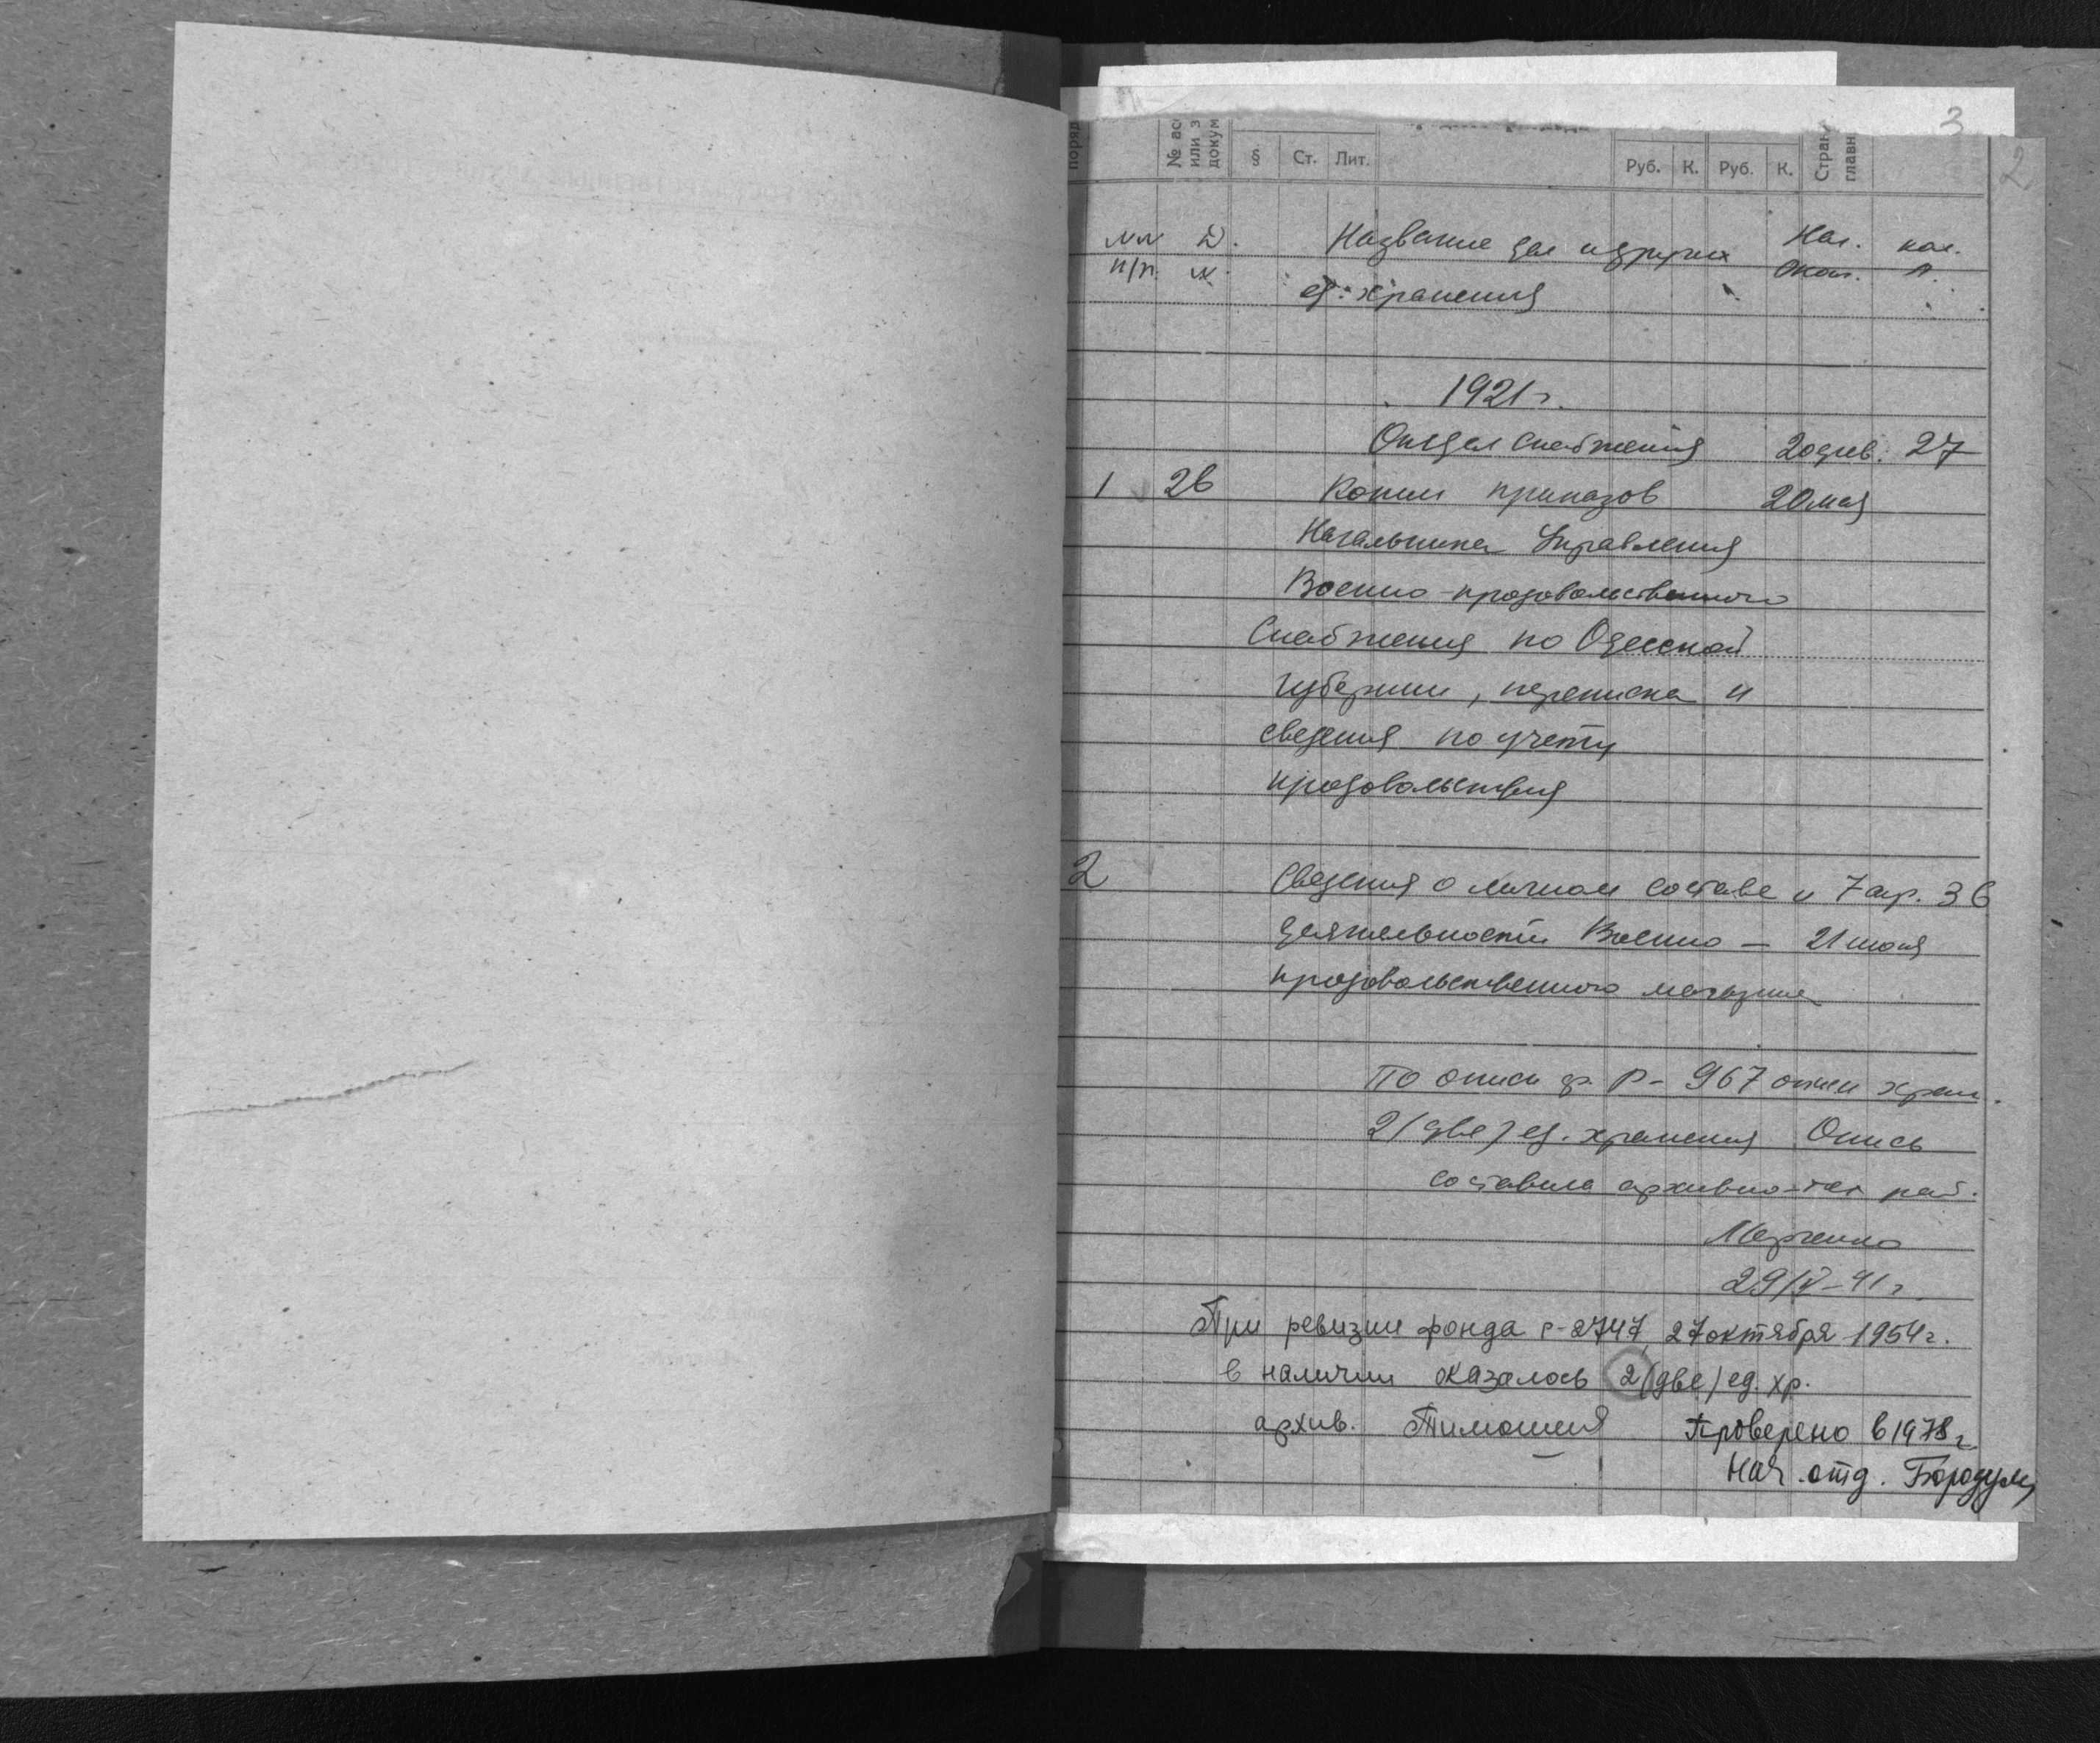 3
2
поряд
№ ас
или з
докум
§ Ст. Лит. Руб. К. Руб. К.
Стран
главн
№№ Название дел и других Нач. кол.
п/п. ед. хранения Окон. л.
1921 г.
Отдел снабжения 20 фев. 27
1 26 Копии приказов 20 мая
Начальника Управления
Военно-продовольственного
Снабжения по Одесской
губернии, переписка и
сведения по учету
продовольствия
2 Сведения о личном составе и 7 апр. 36
деятельности Военно — 21 июля
продовольственного магазина
По описи ф. Р-967 описи хран.
2 (две) ед. хранения Опись
составила архивно-тех раб.
29/V-41 г.
При ревизии фонда р-2747 27 октября 1954 г.
в наличии оказалось 2 (две) ед. хр.
архив. Проверено в 1978 г.
Нач. отд.